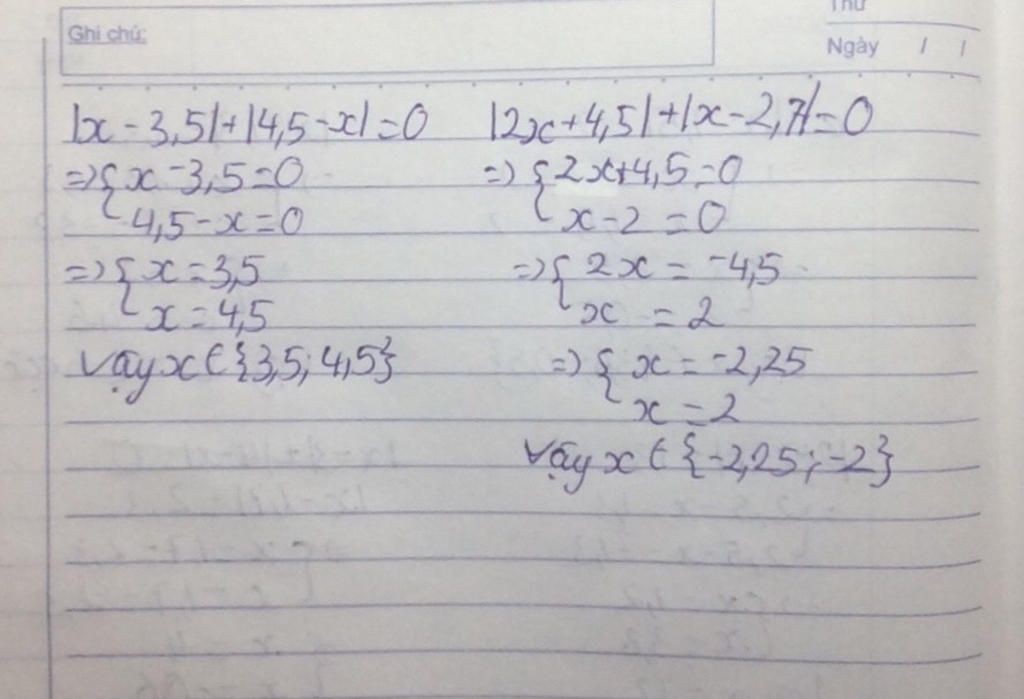 Ghi chú:
Thứ
Ngày / /
|x - 3,5| + |4,5 - x| = 0
=> { x - 3,5 = 0
4,5 - x = 0
=> { x = 3,5
x = 4,5
Vậy x ∈ {3,5; 4,5}
|2x + 4,5| + |x - 2,7| = 0
=> { 2x + 4,5 = 0
x - 2 = 0
=> { 2x = -4,5
x = 2
=> { x = -2,25
x = 2
Vậy x ∈ {-2,25; -2}